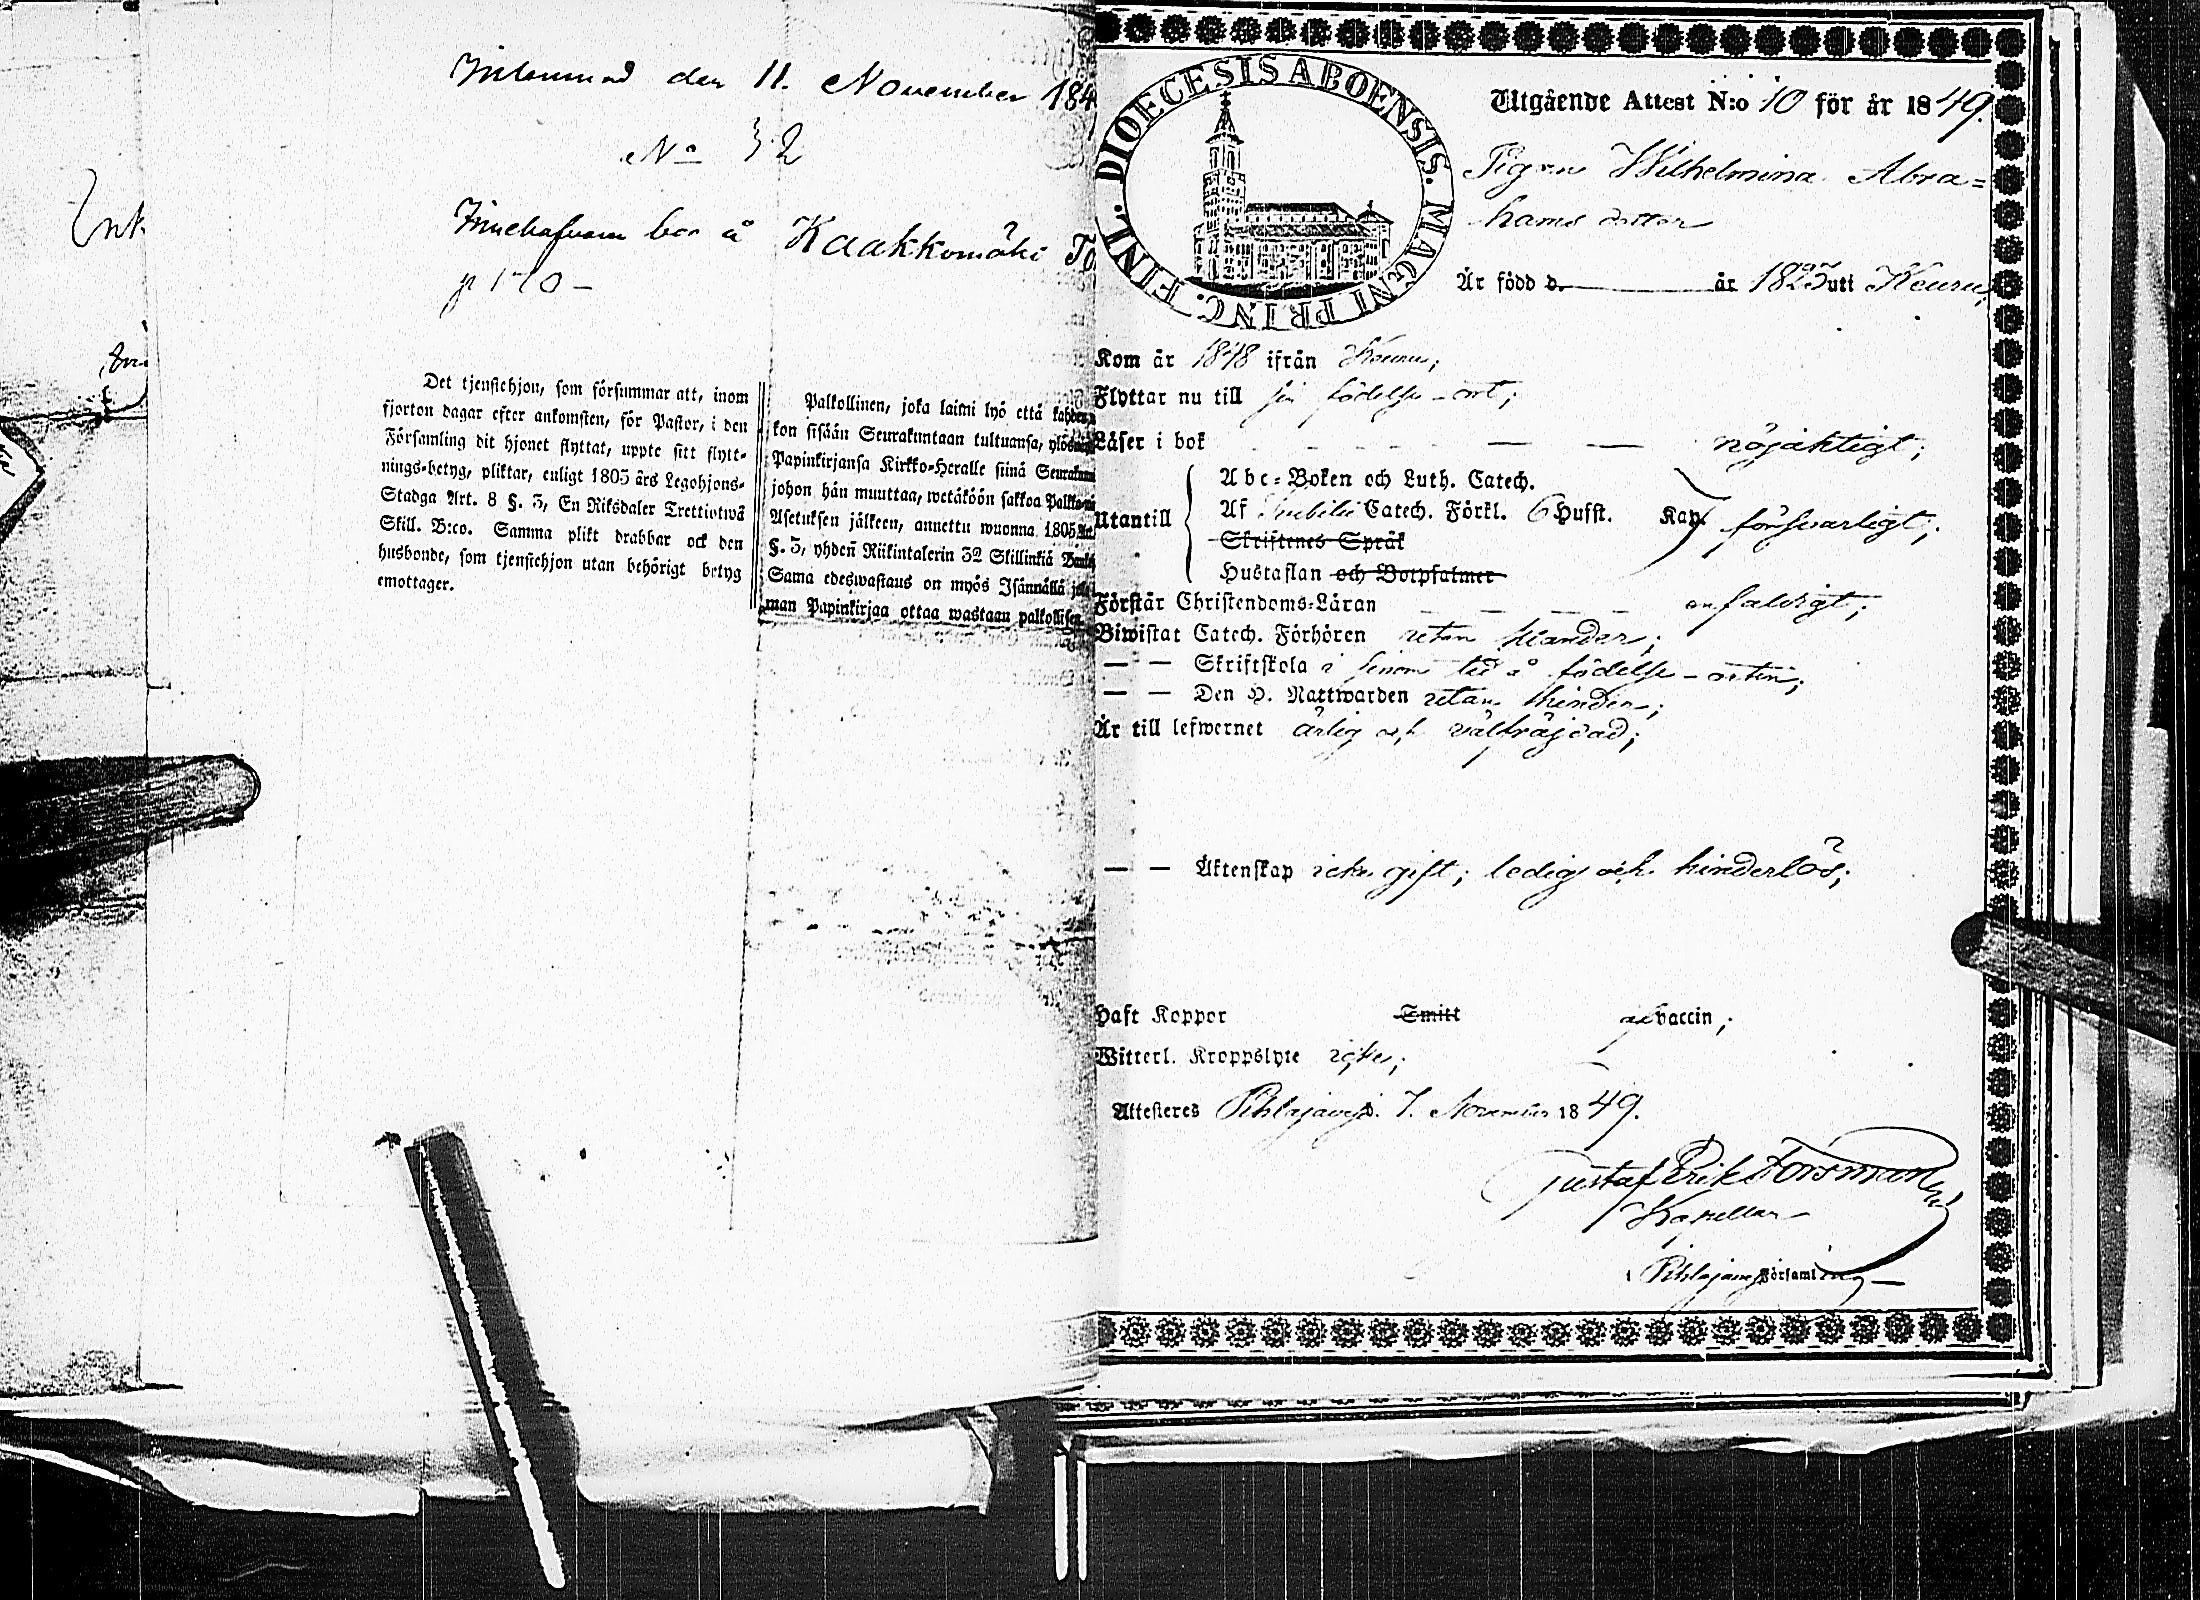 den 11. November 184
No 32
bor å Kaakkomäki To
p 170 -
Det tjenstehjon, som försummar att, inom
fjorton dagar efter ankomsten, för Pastor, i den
Församling dit hjonet flyttat, uppte sitt flytt-
nings-betyg, pliktar, enligt 1805 års Legohjons-
Stadga Art. 8 §. 3, En Riksdaler Trettiotwå
Skill. B:co. Samma plikt drabbar ock den
husbonde, som tjenstehjon utan behörigt betyg
emottager.
Palkollinen, joka laimi lyö että kahden
kon sisään Seurakuntaan tultuansa, ylös
Papinkirjansa Kirkko-Heralle siinä Seurakun
johon hän muuttaa, wetäköön sakkoa Palkko
Asetuksen jälkeen, annettu wuonna 1805 Art.
§. 3, yhden Riikintalerin 32 Skillinkiä Banko
Sama edeswastaus on myös Isännällä jo
man Papinkirjaa ottaa wastaan palkollisen
DIOECESIS ABOENSIS. MAGNI PRINC. FINL.
Utgående Attest N:o 10 för år 1849.
Pigan Wilhelmina Abra=
hams dotter
Är född d. år 1825 uti Keuru;
Kom år 1848 ifrån Keuru;
Flyttar nu till sin födelse-ort;
Läser i bok — — — nöjaktigt;
Utantill
Abc-Boken och Luth. Catech.
Af Catech. Förkl. 6 Hufst. Kap. försvarligt;
Skriftenes Språk
Hustaflan och Botpsalmer
Förstår Christendoms-Läran — — — — enfaldigt;
Biwistat Catech. Förhören utan hinder;
— — Skriftskola i senare tid å födelse-orten;
— — Den H. Nattwarden utan hinder;
Är till lefwernet ärlig och välfräjdad;
— — Äktenskap icke gift; ledig och hinderlös;
Haft Koppor Smitt af vaccin;
Witterl. Kroppslyte icke;
Attesteres Pihlajavesi d. 7. November 1849.
Gustaf Erik Forsman
Kapellan
i Pihlajavesi Församling